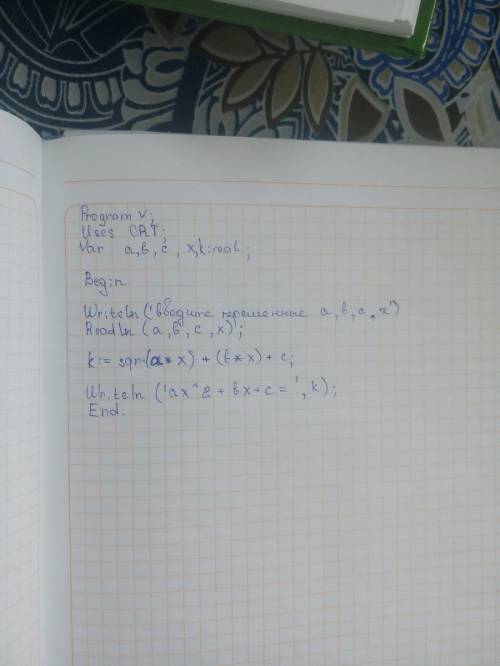 Program v;
Uses CRT;
Var a, b, c, x, k: real;
Begin
Writeln ('введите переменные a, b, c, x')
Readln (a, b, c, x);
k:= sqr(a*x) + (b*x) + c;
Writeln ('ax^2 + bx + c = ', k);
End.